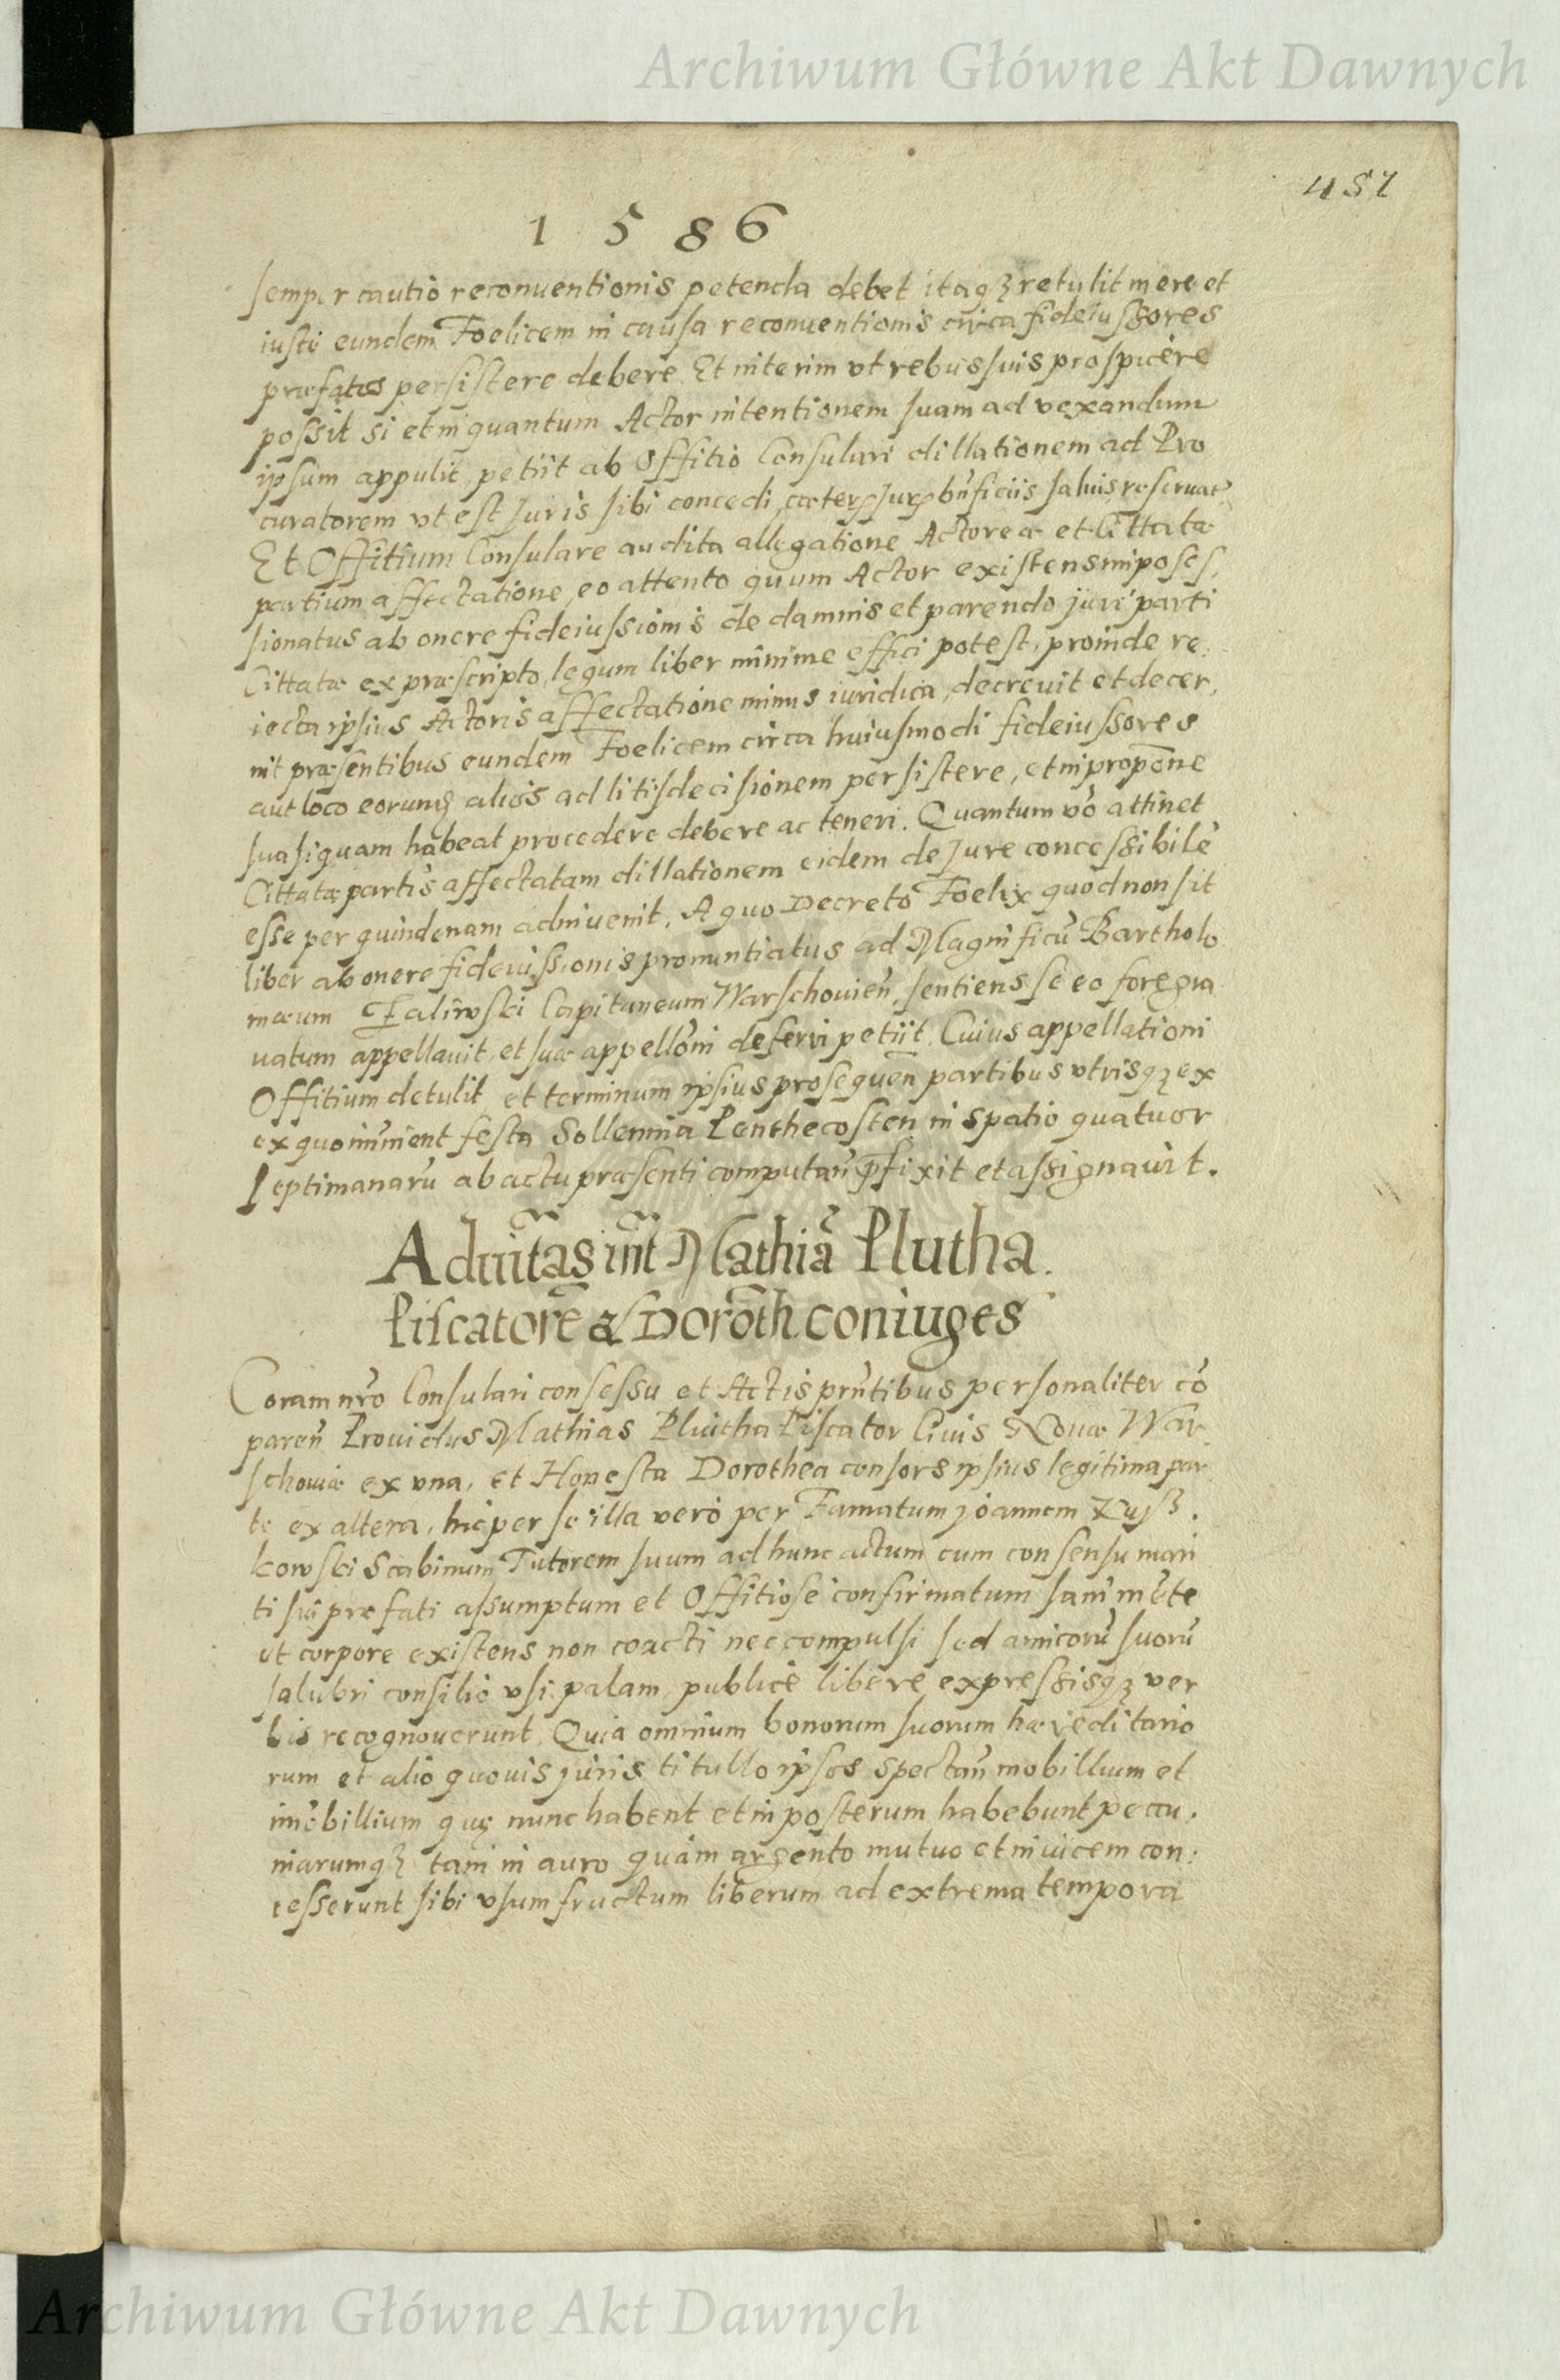 Archiwum Główne Akt Dawnych
451
1586
semper cautio reconuentionis petenda debet itaqz retulit mere et
iuste eundem Foelicem in causa reconuentionis circa fideiussores
præfatos persistere debere Et interim vt rebus suis prospicere
possit si et in quantum Actor intentionem suam ad vexandum
ipsum appulit, petiit ab Offitio Consulari dillationem ad Pro
curatorem vt est Juris sibi concedi, cæter Jur bnficiis saluis reseruat
Et Offitium Consulare audita allegatione Actoreæ et Cittatæ
partium affectatione, eo attento quum Actor existens imposes,
sionatus ab onere fideiussionis de damnis et parendo juri parti
Cittatæ ex præscripto legum liber minime effici potest, proinde re:
iecta ipsius Actoris affectatione minus iuridica, decreuit et decer,
nit præsentibus eundem Foelicem circa huiusmodi fideiussores
aut loco eorumqz aliis ad litis decisionem persistere, et in propōne
sua si quam habeat procedere debere ac teneri. Quantum vō attinet
Cittatæ partis affectatam dillationem eidem de Jure concessibile
esse per quindenam adinuenit, A quo Decreto Foelix quod non sit
liber ab onere fideiussionis pronuntiatus ad Magnificū Bartholo
mæum Zaliwski Capitaneum Warschouien̄, sentiens se eo fore gra
uatum appellauit, et suæ appellōni deferri petiit. Cuius appellationi
Offitium detulit et terminum ipsius prosequen̄ partibus vtrisqz ex
ex quo imminent festa Sollennia Penthecosten in spatio quatuor
septimanarū ab actu præsenti computan̄ p̄fixit et assignauit.
Aduitas int Mathiā Plutha
Piscatorē & Doroth. coniuges
Coram nrō Consulari consessu et Actis prn̄tibus personaliter cō
paren̄ Prouidus Mathias Plutha Piscator Ciuis Nouæ War
schouiæ ex vna, et Honesta Dorothea consors ipsius legitima par
te ex altera, hic per se illa vero per Famatum joannem
kowski Scabinum Tutorem suum ad hunc actum cum consensu mari
ti sui præfati assumptum et Offitiose confirmatum sani mēte
et corpore existens non coacti nec compulsi sed amicorū suorū
salubri consilio vsi palam, publice libere expressisqz ver
bis recognouerunt, Quia omnium bonorum suorum hæreditario
rum et alio quouis juris titullo ipsos spectan̄ mobillium et
imōbillium quę nunc habent et in posterum habebunt pecu.
niarumqz tam in auro quam argento mutuo et inuicem con:
cesserunt sibi vsumfructum liberum ad extrema tempora
Archiwum Główne Akt Dawnych